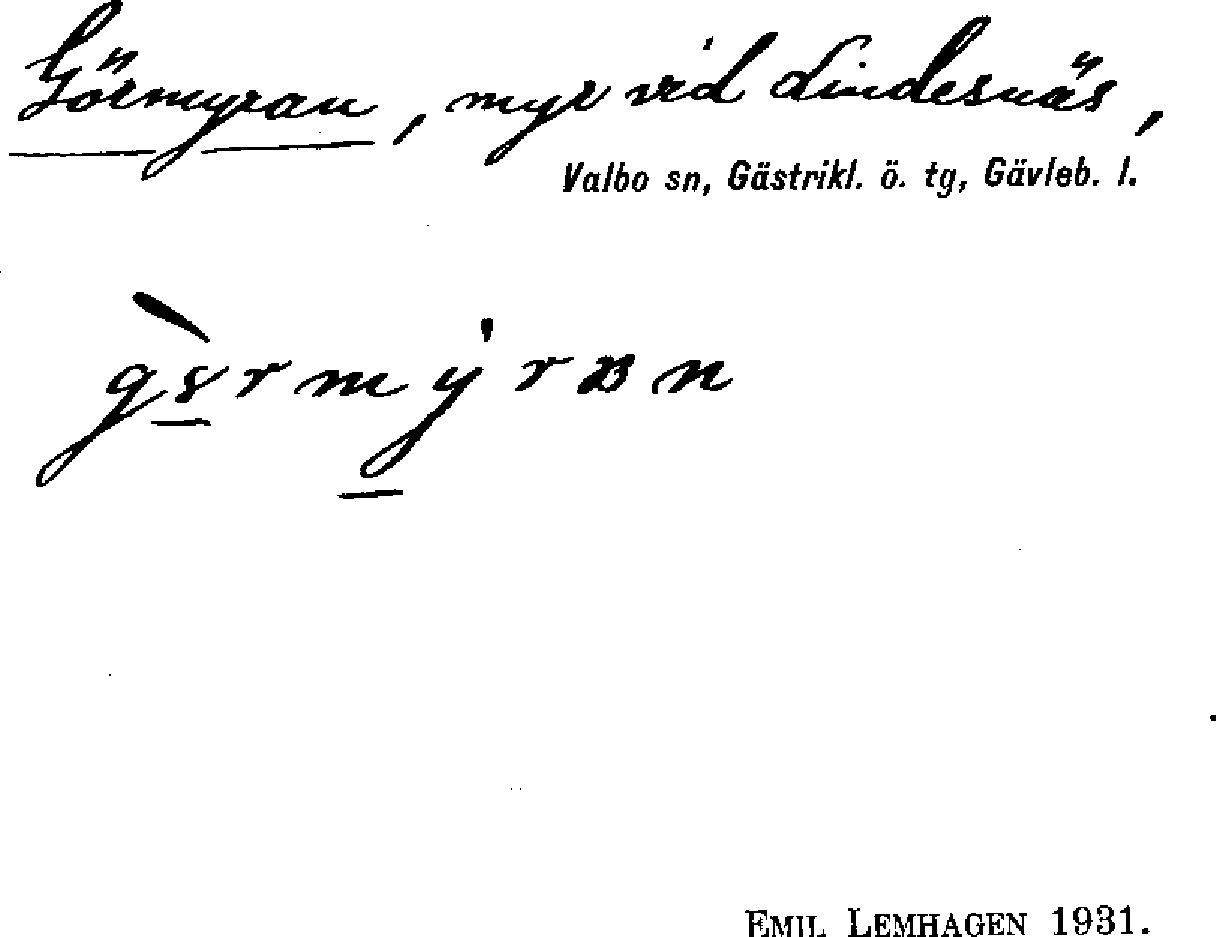 Görmyran, myr vid Lindesnäs,
Valbo sn, Gästrikl. ö. tg, Gävleb. l.
EMIL LEMHAGEN 1931.